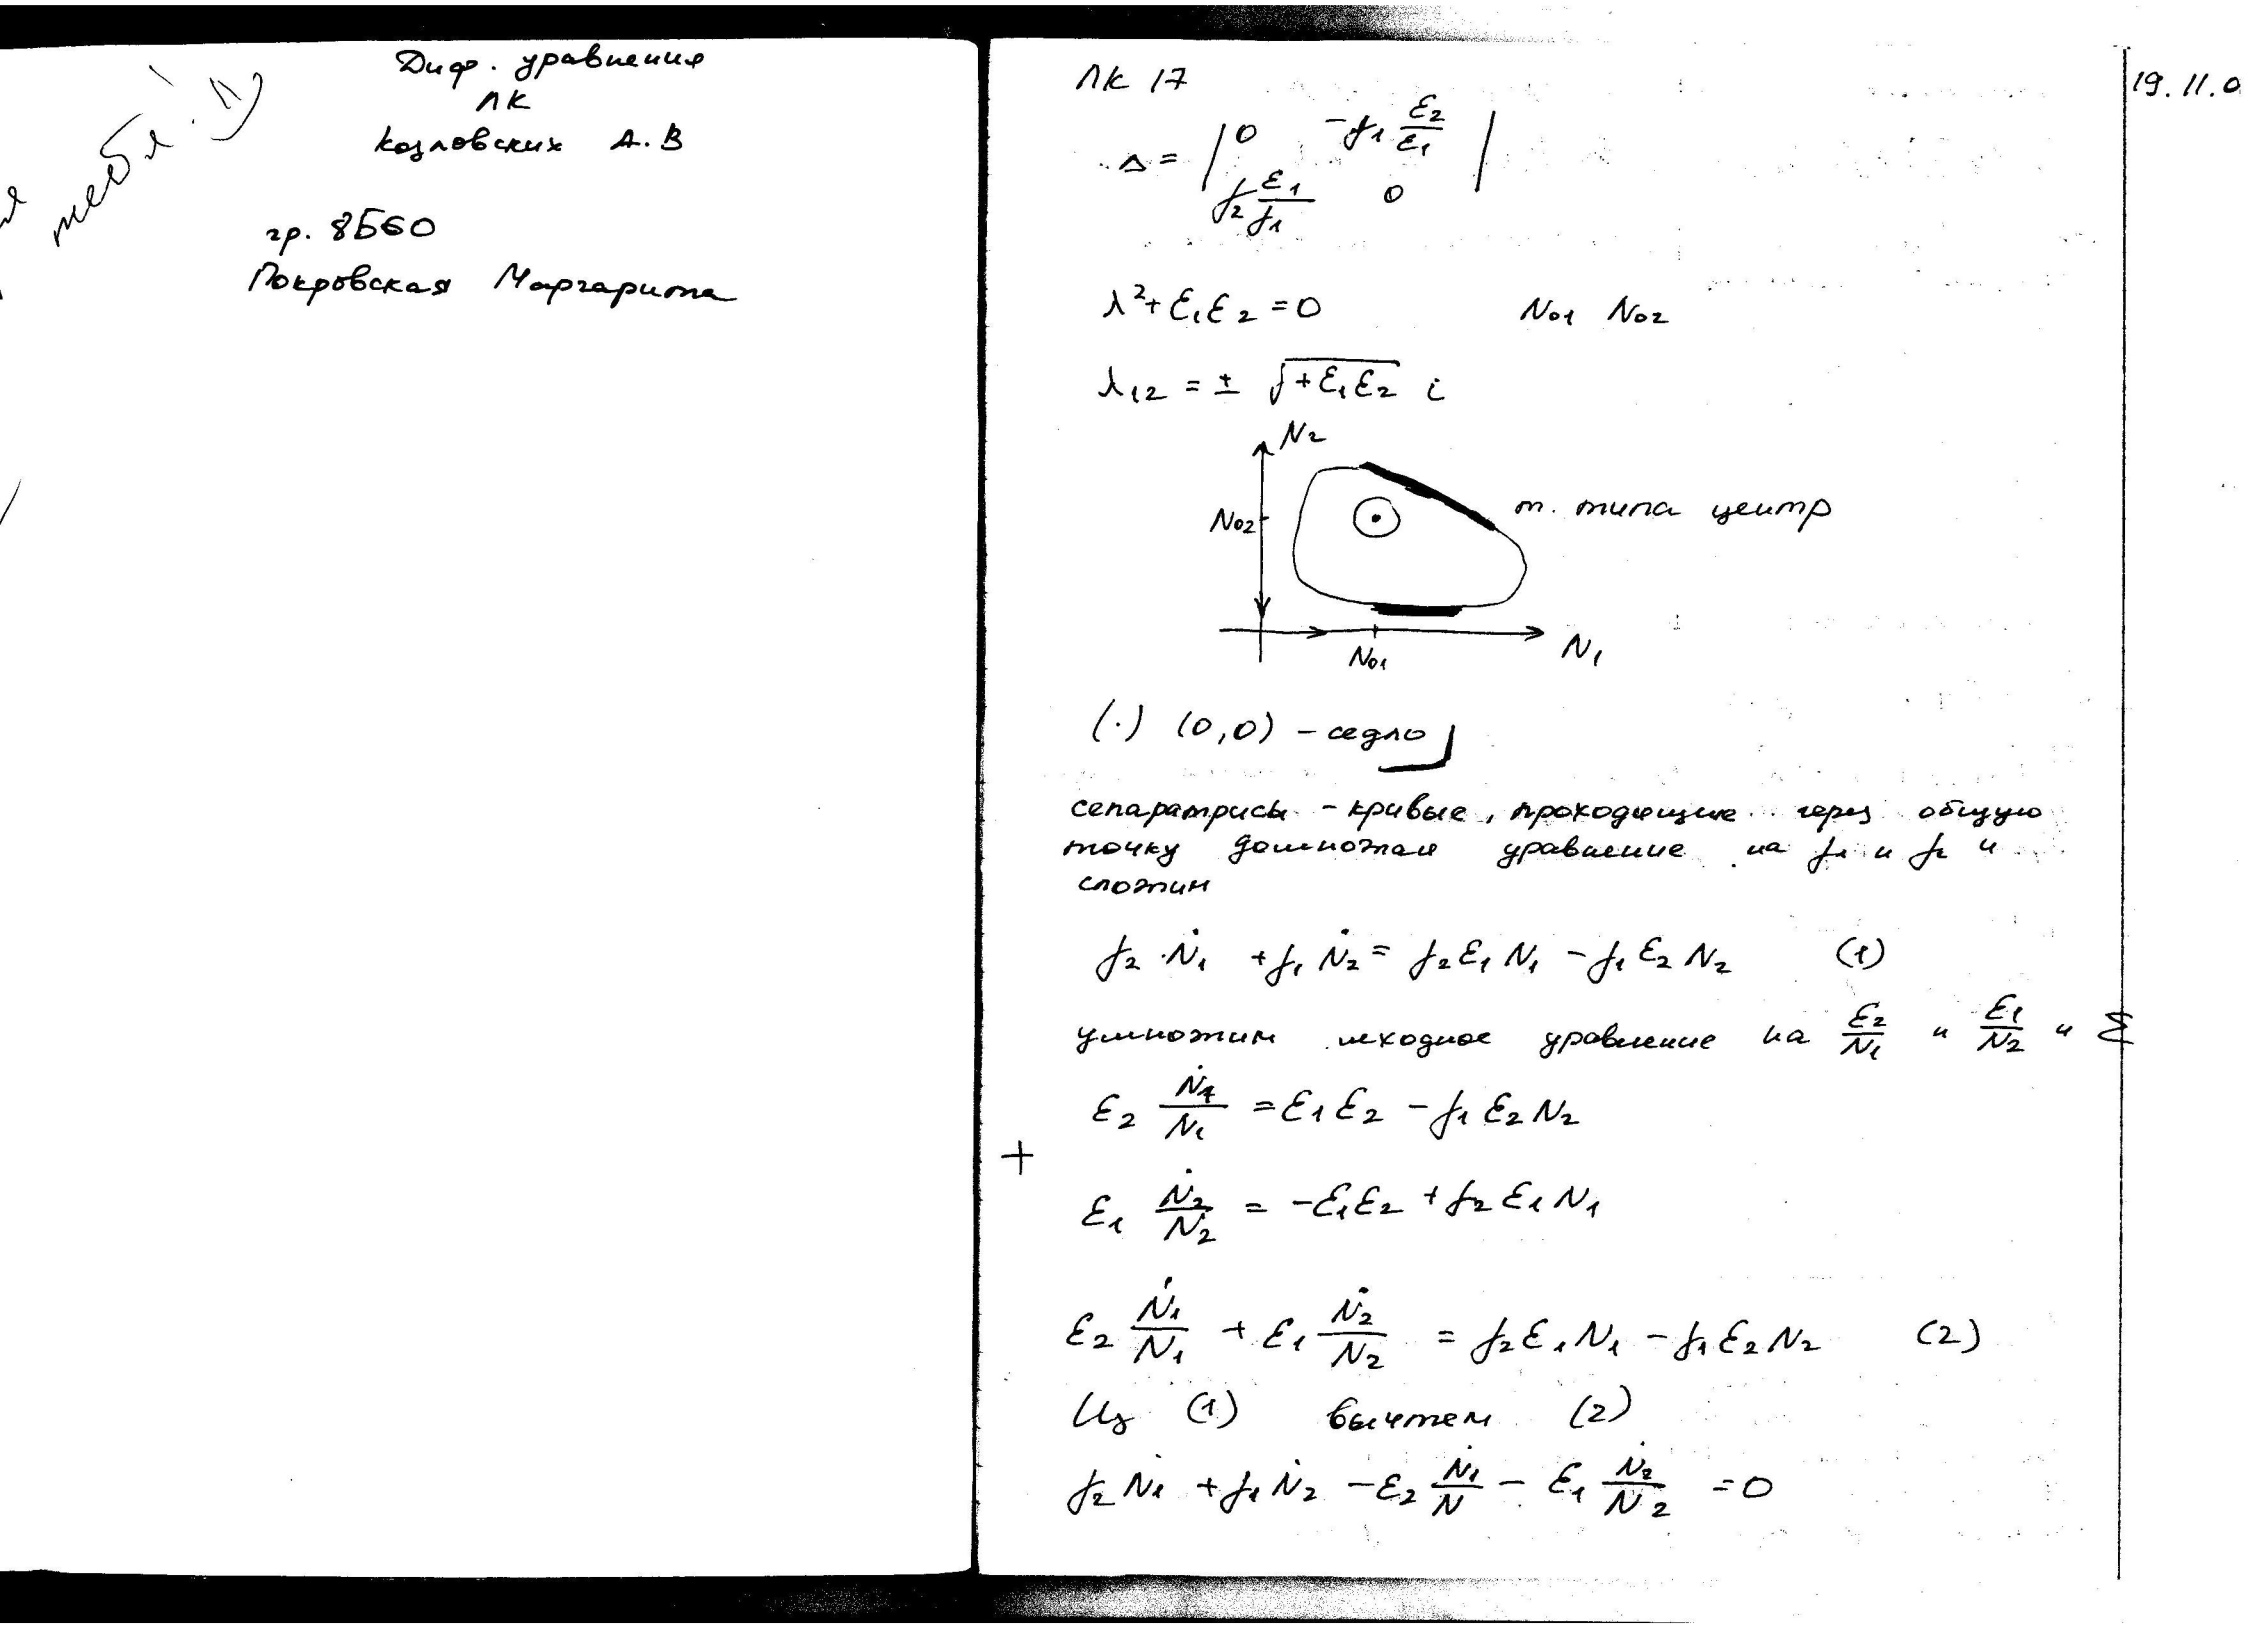 тебя!
Диф. уравнения
ЛК
Козловских А.В
гр. 8Б60
Покровская Маргарита
ЛК 17
19.11.0
Δ = | 0 -γ₁ ε₂/ε₁ |
γ₂ ε₁/γ₁ 0
λ² + ε₁ε₂ = 0 N₀₁ N₀₂
λ₁₂ = ± √+ε₁ε₂ i
N₂
N₀₂ т. типа центр
N₀₁ N₁
(·) (0,0) – седло
сепаратрисы – кривые, проходящие через общую
точку домножая уравнение на γ₁ и γ₂ и
сложим
γ₂ · Ṅ₁ + γ₁ Ṅ₂ = γ₂ ε₁ N₁ – γ₁ ε₂ N₂ (1)
умножим исходное уравнение на ε₂/N₁ и ε₁/N₂ и Σ
ε₂ Ṅ₁/N₁ = ε₁ ε₂ – γ₁ ε₂ N₂
+
ε₁ Ṅ₂/N₂ = –ε₁ε₂ + γ₂ ε₁ N₁
ε₂ Ṅ₁/N₁ + ε₁ Ṅ₂/N₂ = γ₂ ε₁ N₁ – γ₁ ε₂ N₂ (2)
Из (1) вычтем (2)
γ₂ Ṅ₁ + γ₁ Ṅ₂ – ε₂ Ṅ₁/N – ε₁ Ṅ₂/N₂ = 0